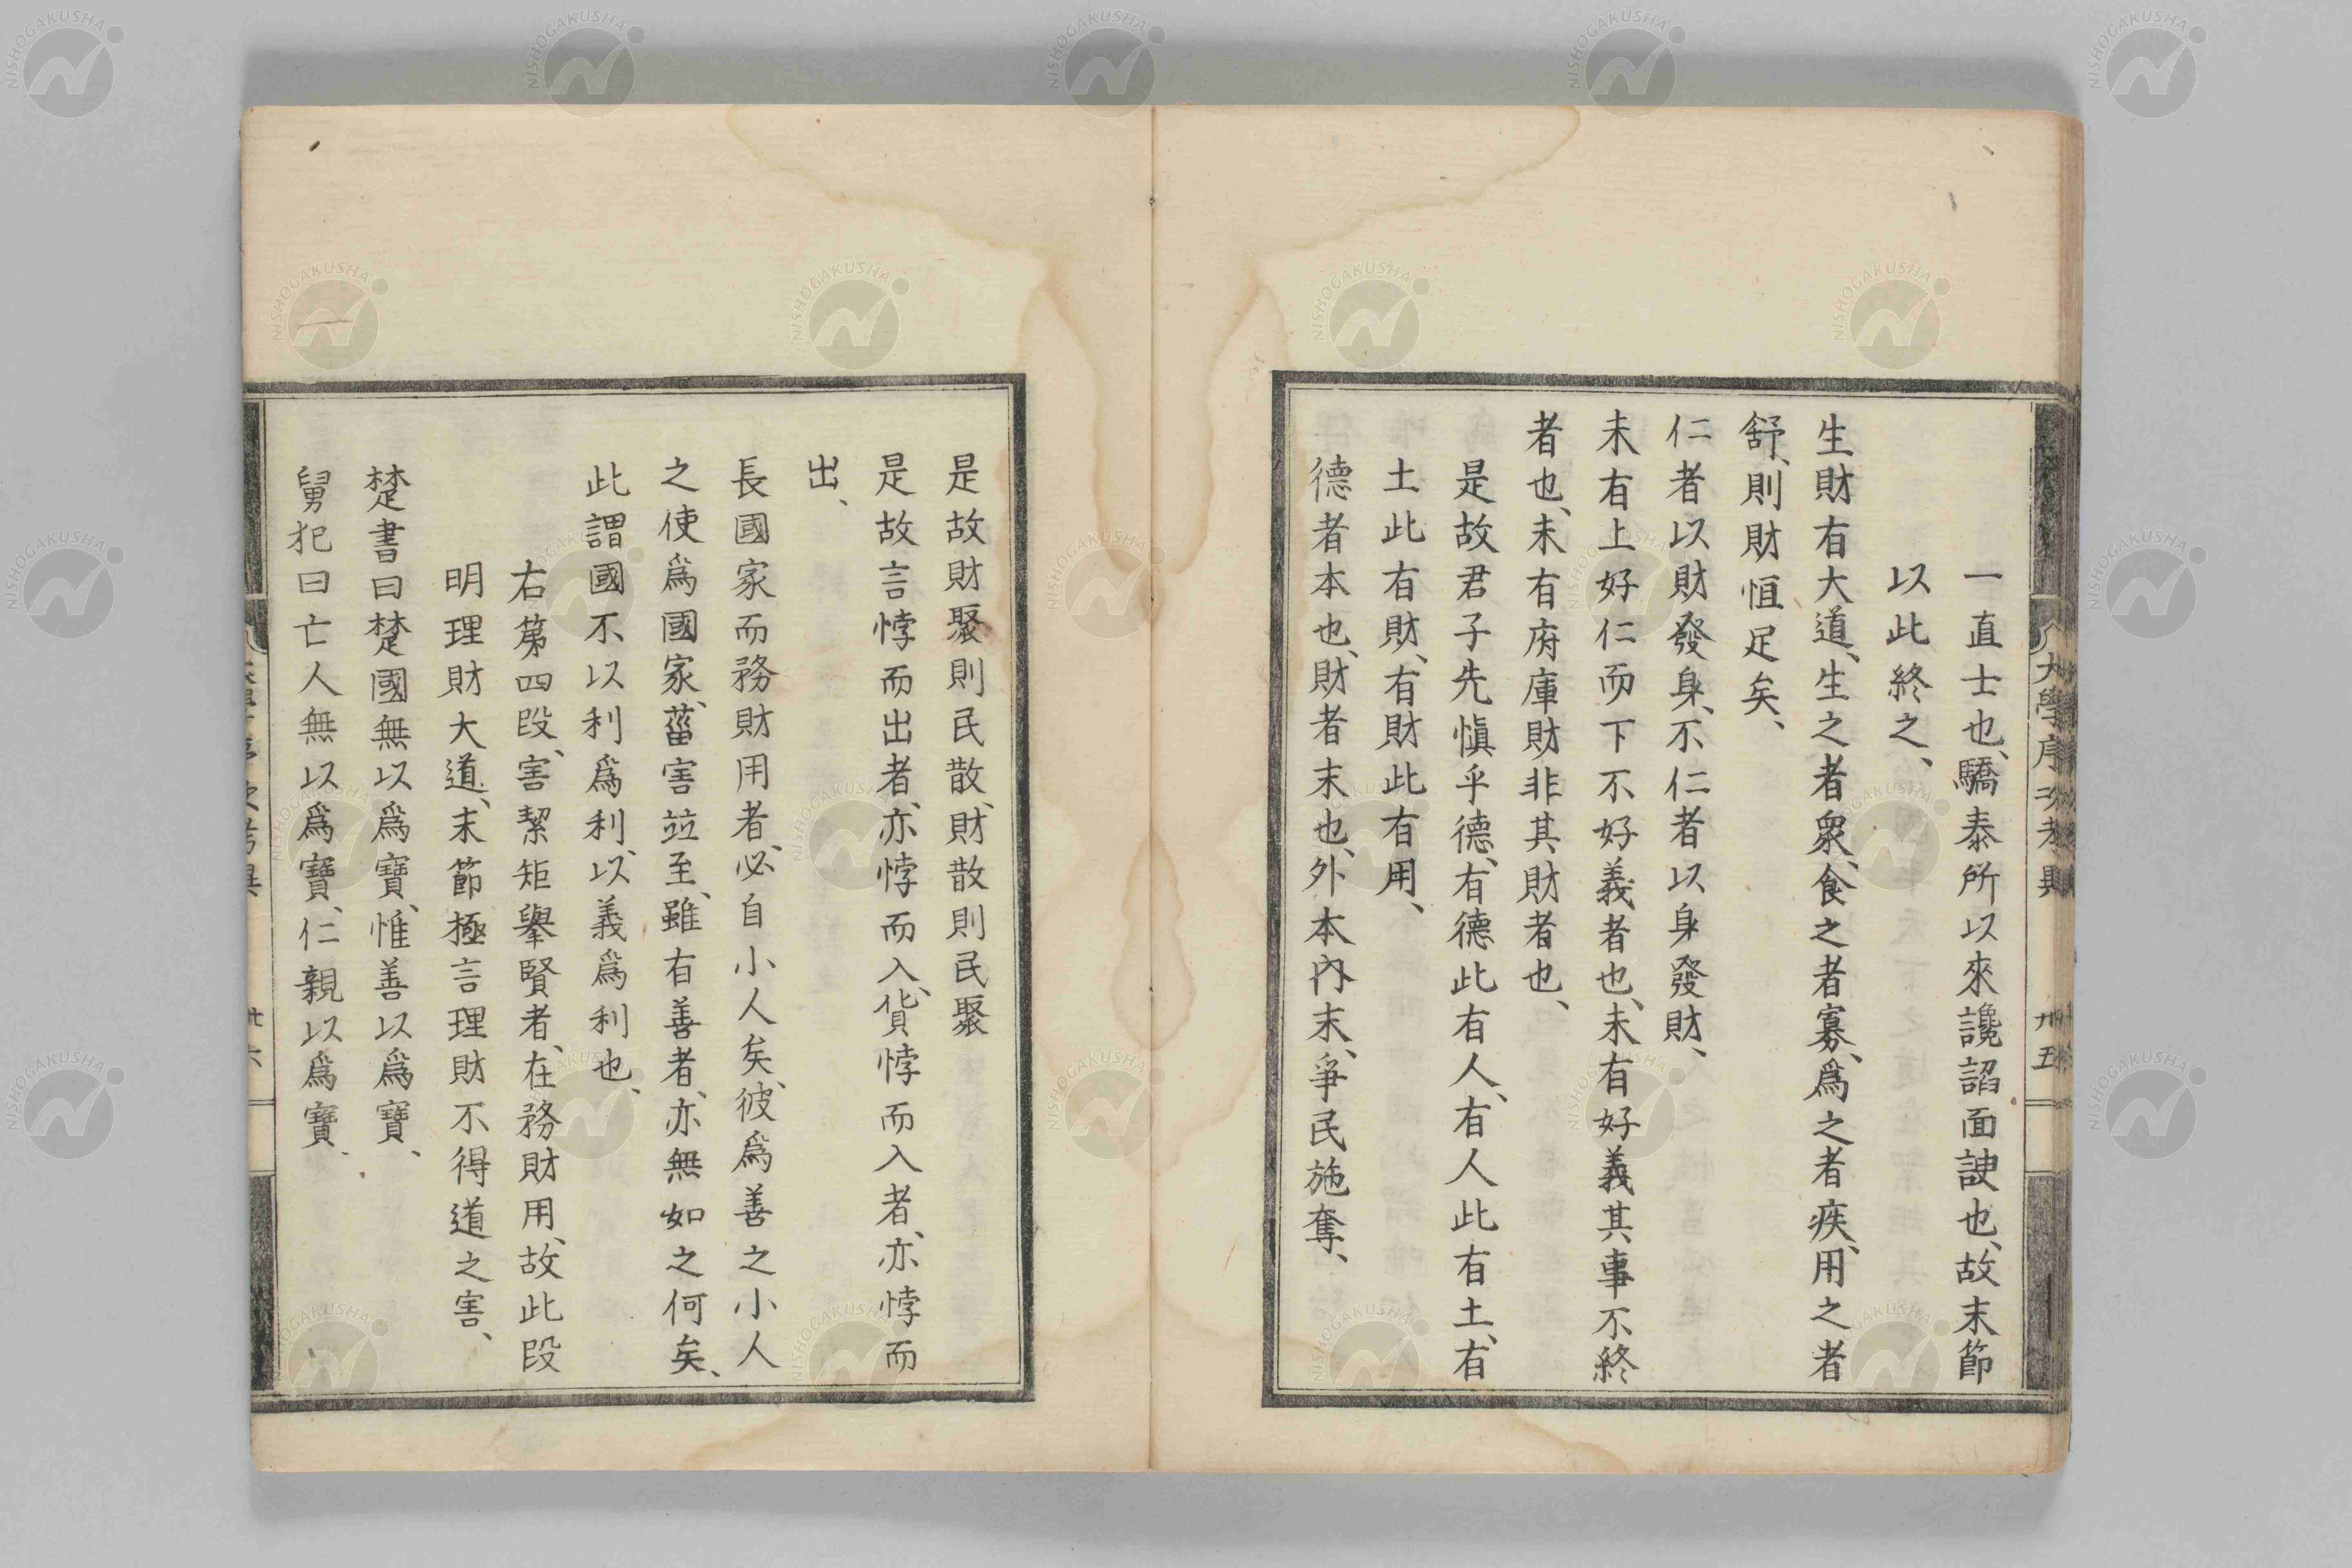 大學序次考異
廿五
一直士也、驕泰所以來讒諂面諛也、故末節
以此終之、
生財有大道、生之者衆、食之者寡、爲之者疾、用之者
舒、則財恒足矣、
仁者以財發身、不仁者以身發財、
未有上好仁而下不好義者也、未有好義其事不終
者也、未有府庫財非其財者也、
是故君子先愼乎德、有德此有人、有人此有土、有
土此有財、有財此有用、
德者本也、財者末也、外本內末、爭民施奪、
是故財聚則民散、財散則民聚
是故言悖而出者、亦悖而入、貨悖而入者、亦悖而
出、
長國家而務財用者、必自小人矣、彼爲善之小人
之使爲國家、菑害竝至、雖有善者、亦無如之何矣、
此謂國不以利爲利、以義爲利也、
右第四段、害絜矩擧賢者、在務財用、故此段
明理財大道、末節極言理財不得道之害、
楚書曰楚國無以爲寶、惟善以爲寶、
舅犯曰亡人無以爲寶、仁親以爲寶、
廿六
NISHOGAKUSHA